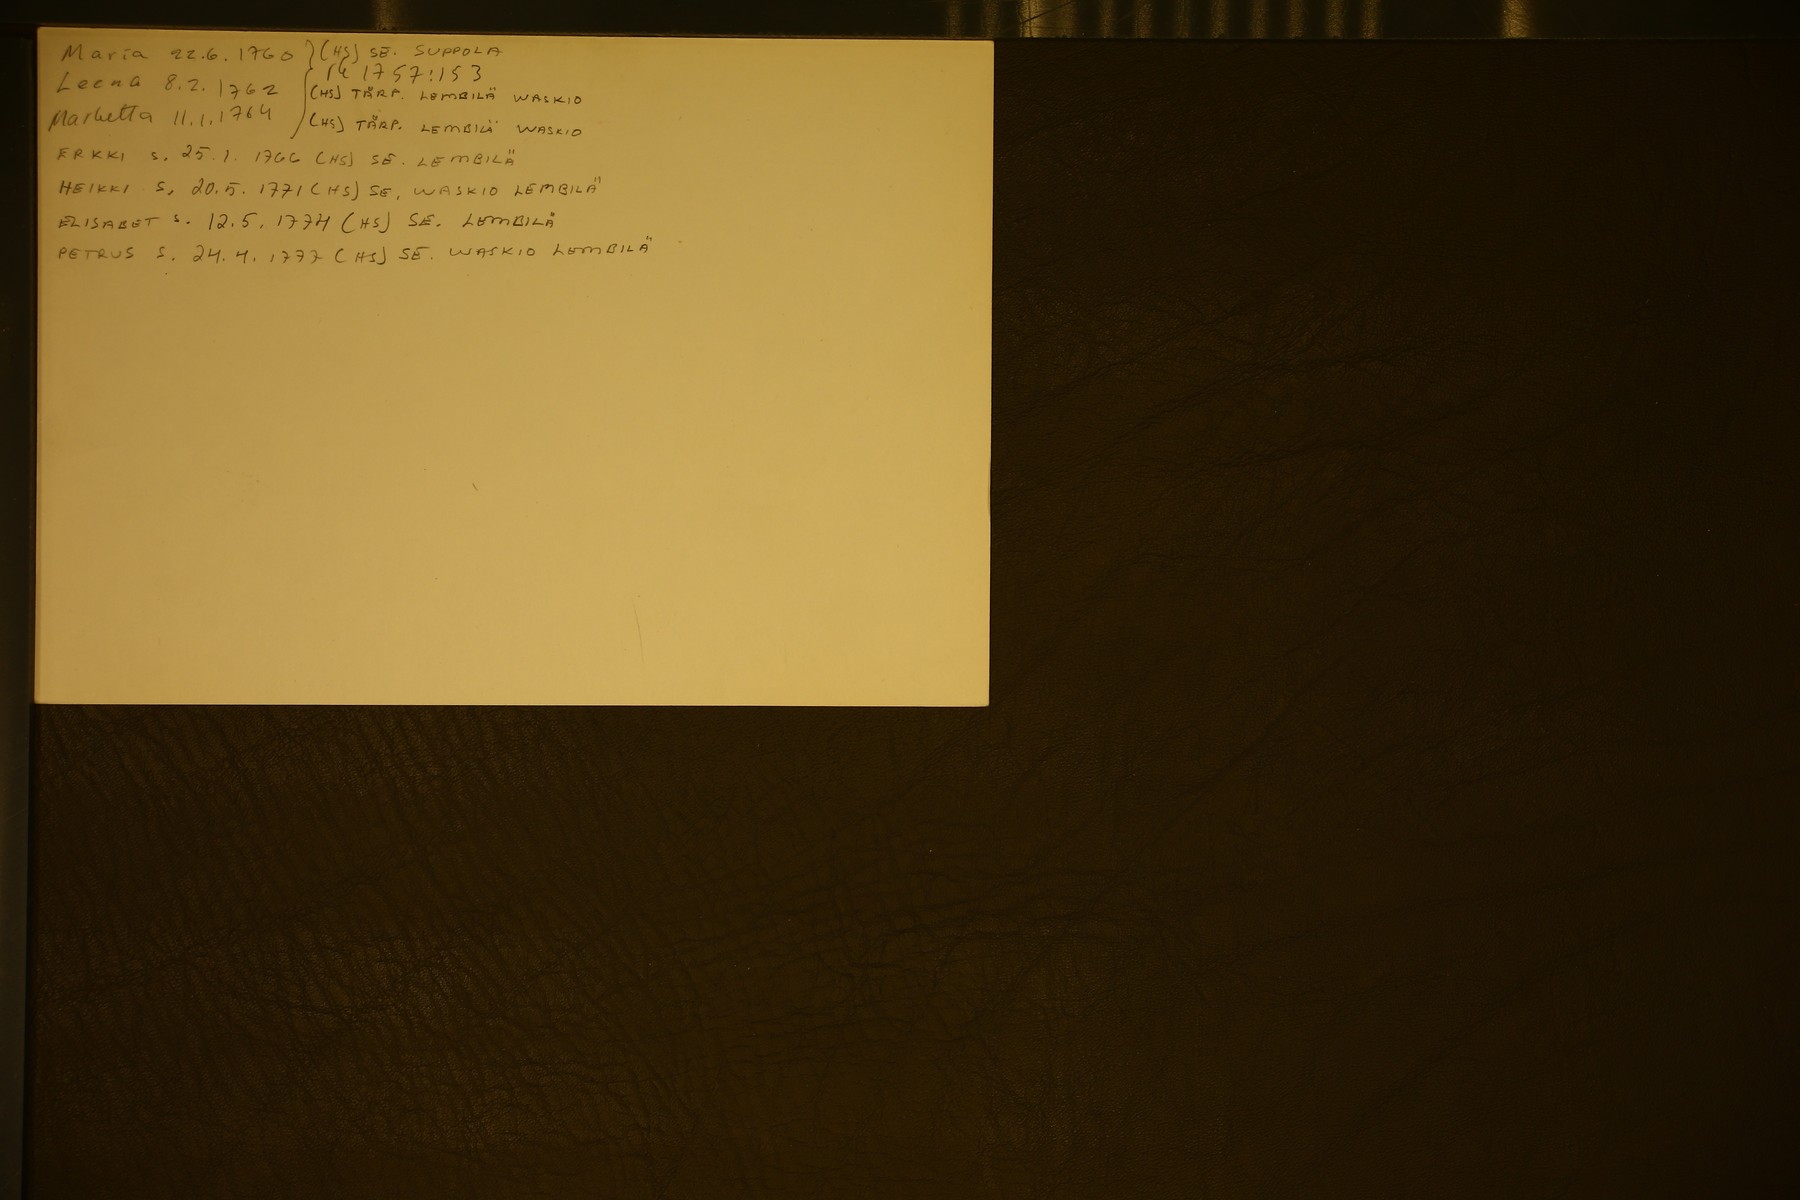 Maria 22.6.1760 } (HS) SE. SUPPOLA
rk 1757:153
Leena 8.2.1762 (HS) TÅRP. LEMBILÄ WASKIO
Marketta 11.1.1764 (HS) TÅRP. LEMBILÄ WASKIO
ERKKI s. 25.1. 1766 (HS) SE. LEMBILÄ
HEIKKI S. 20.5. 1771 (HS) SE, WASKIO LEMBILÄ
ELISABET s. 12.5. 1774 (HS) SE. LEMBILÄ
PETRUS S. 24.4. 1777 (HS) SE. WASKIO LEMBILÄ